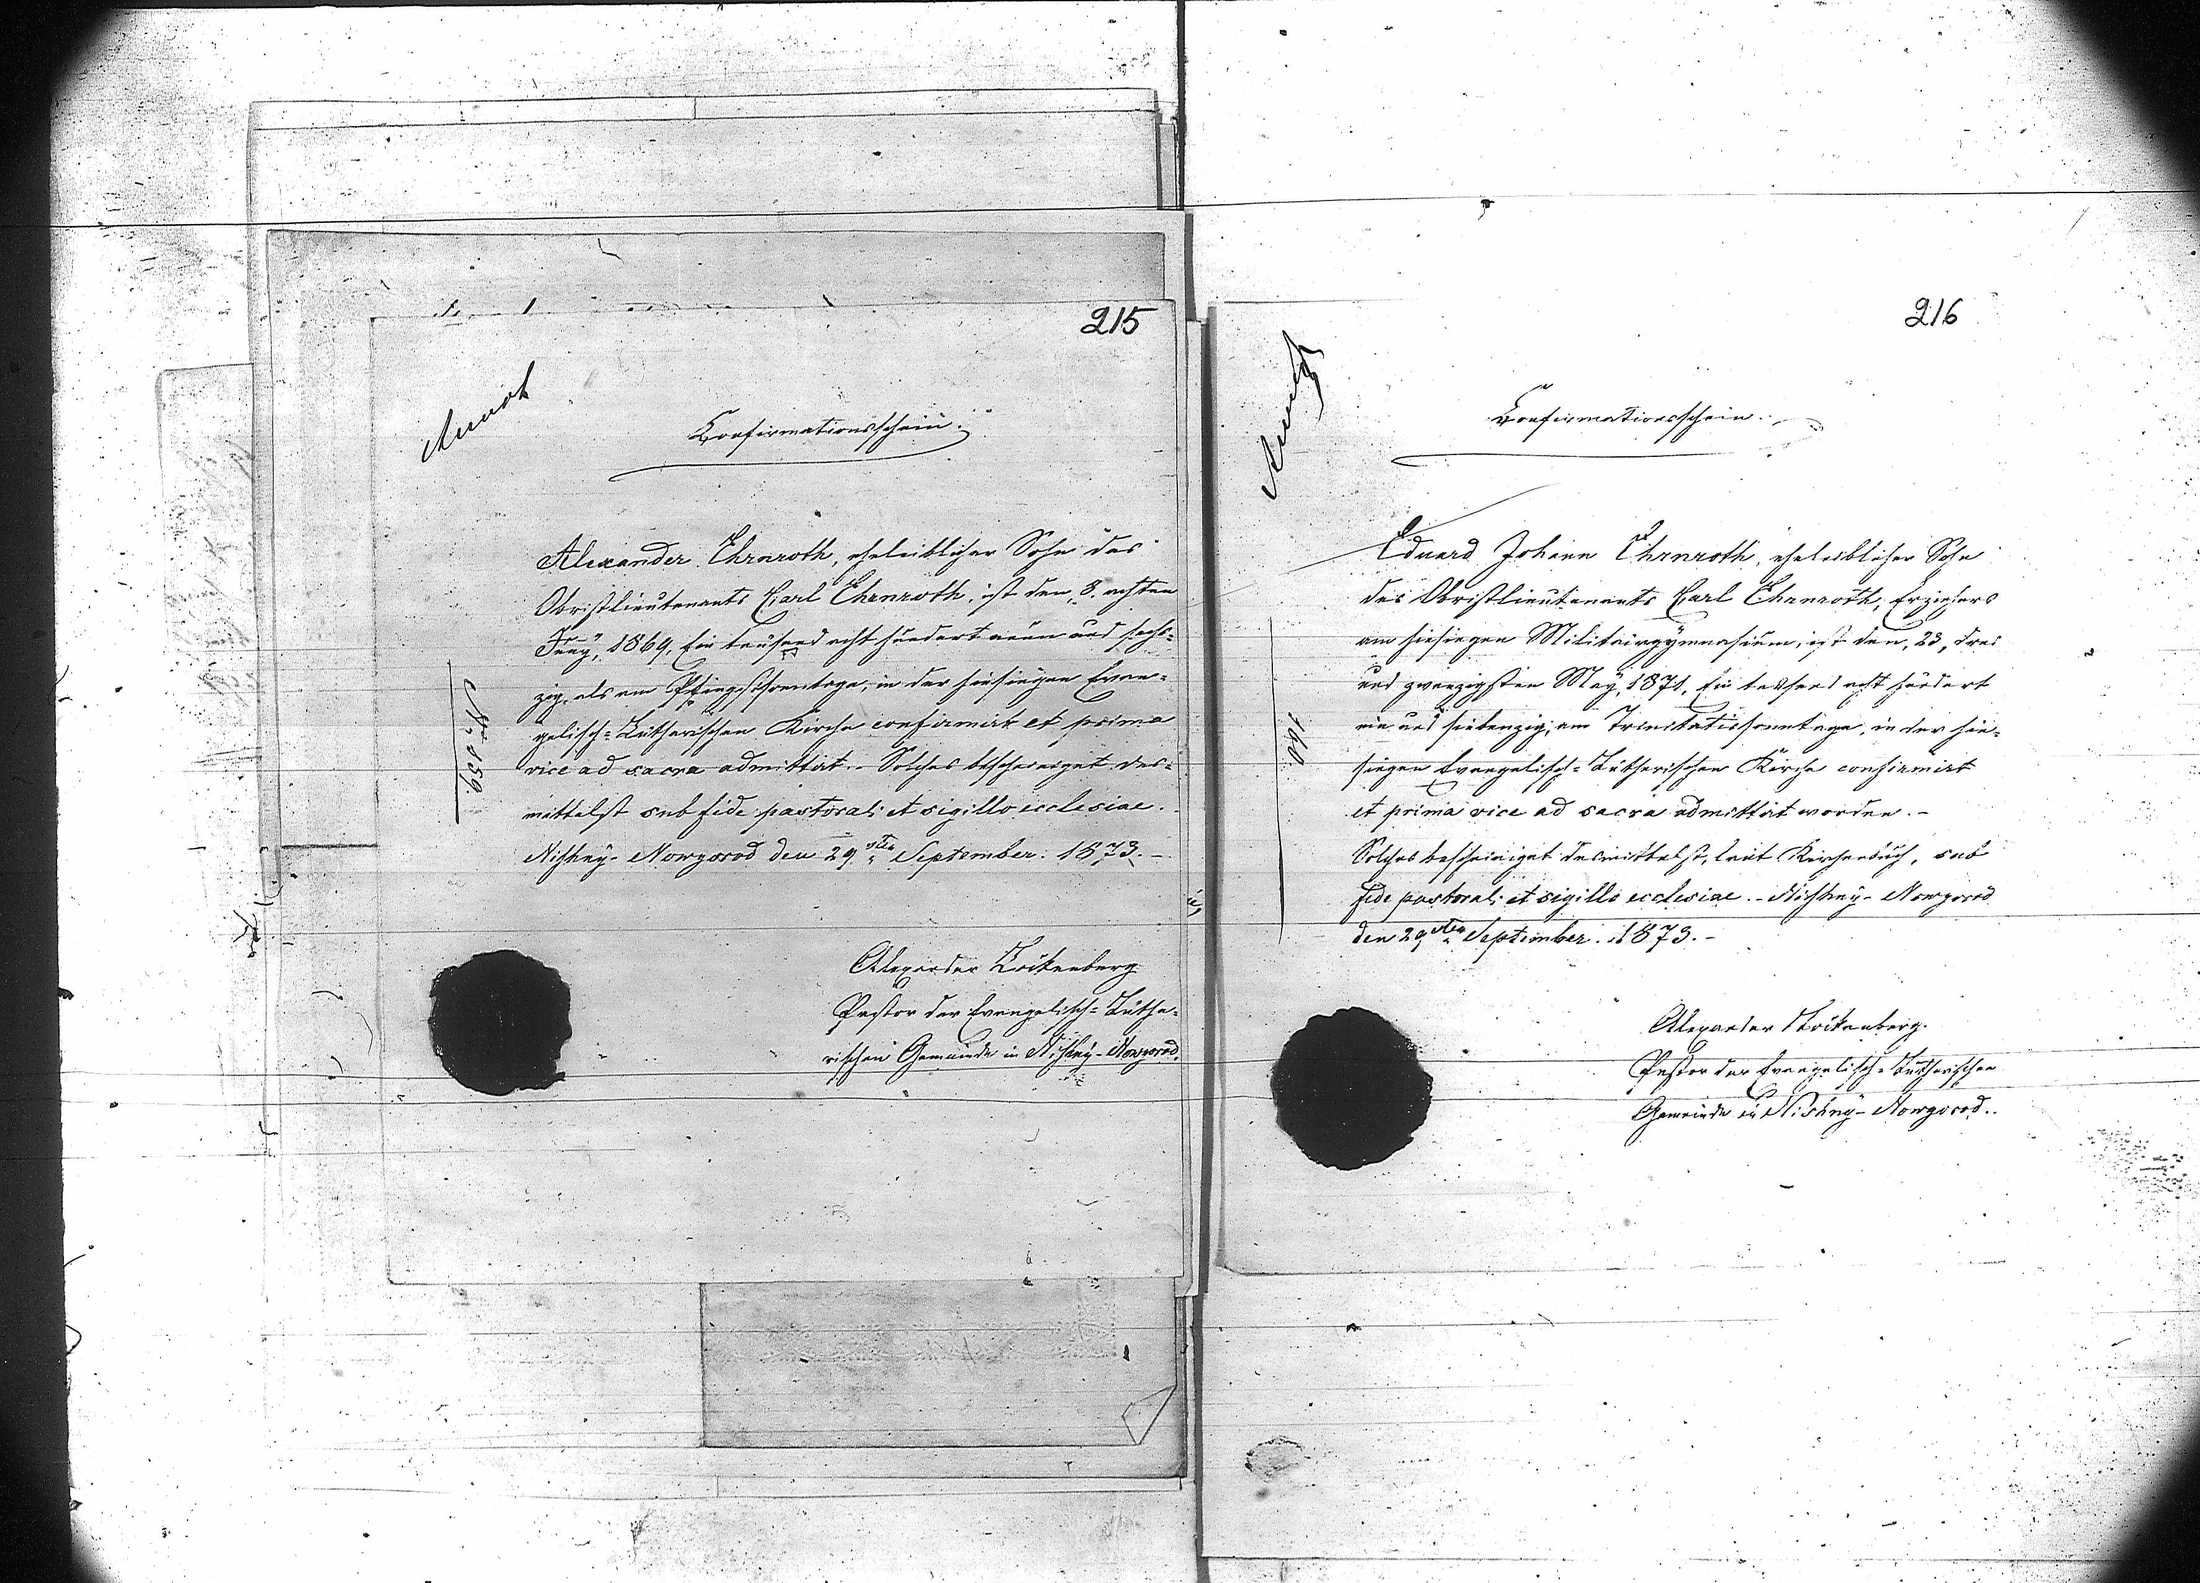 215
Confirmationsschein.
Alexander Ehrnroth, eheleiblicher Sohn des
Obristlieutenants Carl Ehrnroth, ist den 8. achten
Juny, 1869, Ein tausend acht hundert neun und sechs=
zig, als am Pfingstsonntage, in der hiesigen Evan=
gelisch=Lutherischen Kirche confirmirt et prima
vice ad sacra admittirt. - Solches bescheiniget des=
mittelst sub fide pastorali et sigillo ecclesiae.
Nishny-Nowgorod den 29sten September. 1873. -
Alexander
Pastor der Evangelisch=Luthe=
rischen Gemeinde in Nishny-Nowgorod.
№ 159.
216
Confirmationsschein.
Eduard Johann Ehrnroth, eheleiblicher Sohn
des Obristlieutenants Carl Ehrnroth, Erziehers
am hiesigen Militairgymnasium, ist den, 23, drei
und zwanzigsten May, 1871, Ein tausend acht hundert
ein und siebenzig, am Trinitatissonntage, in der hie=
sigen Evangelisch=Lutherischen Kirche confirmirt
et prima vice ad sacra admittirt worden. -
Solches bescheiniget desmittelst, laut Kirchenbuch, sub
fide pastorali et sigillo ecclesiae. - Nishny-Nowgorod
den 29sten September. 1873. -
Alexander
Pastor der Evangelisch=Lutherischen
Gemeinde in Nishny-Nowgorod.
160.